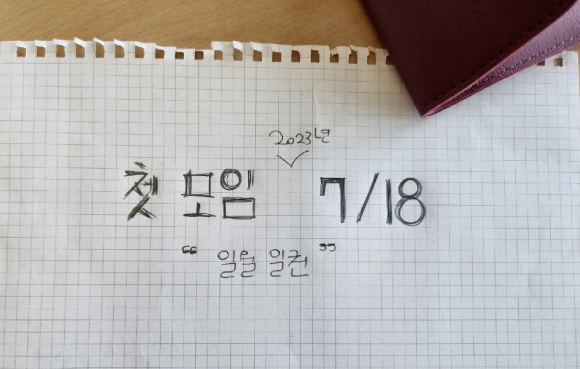 2023년
첫 모임 7/18
“ 일월 일권 ”